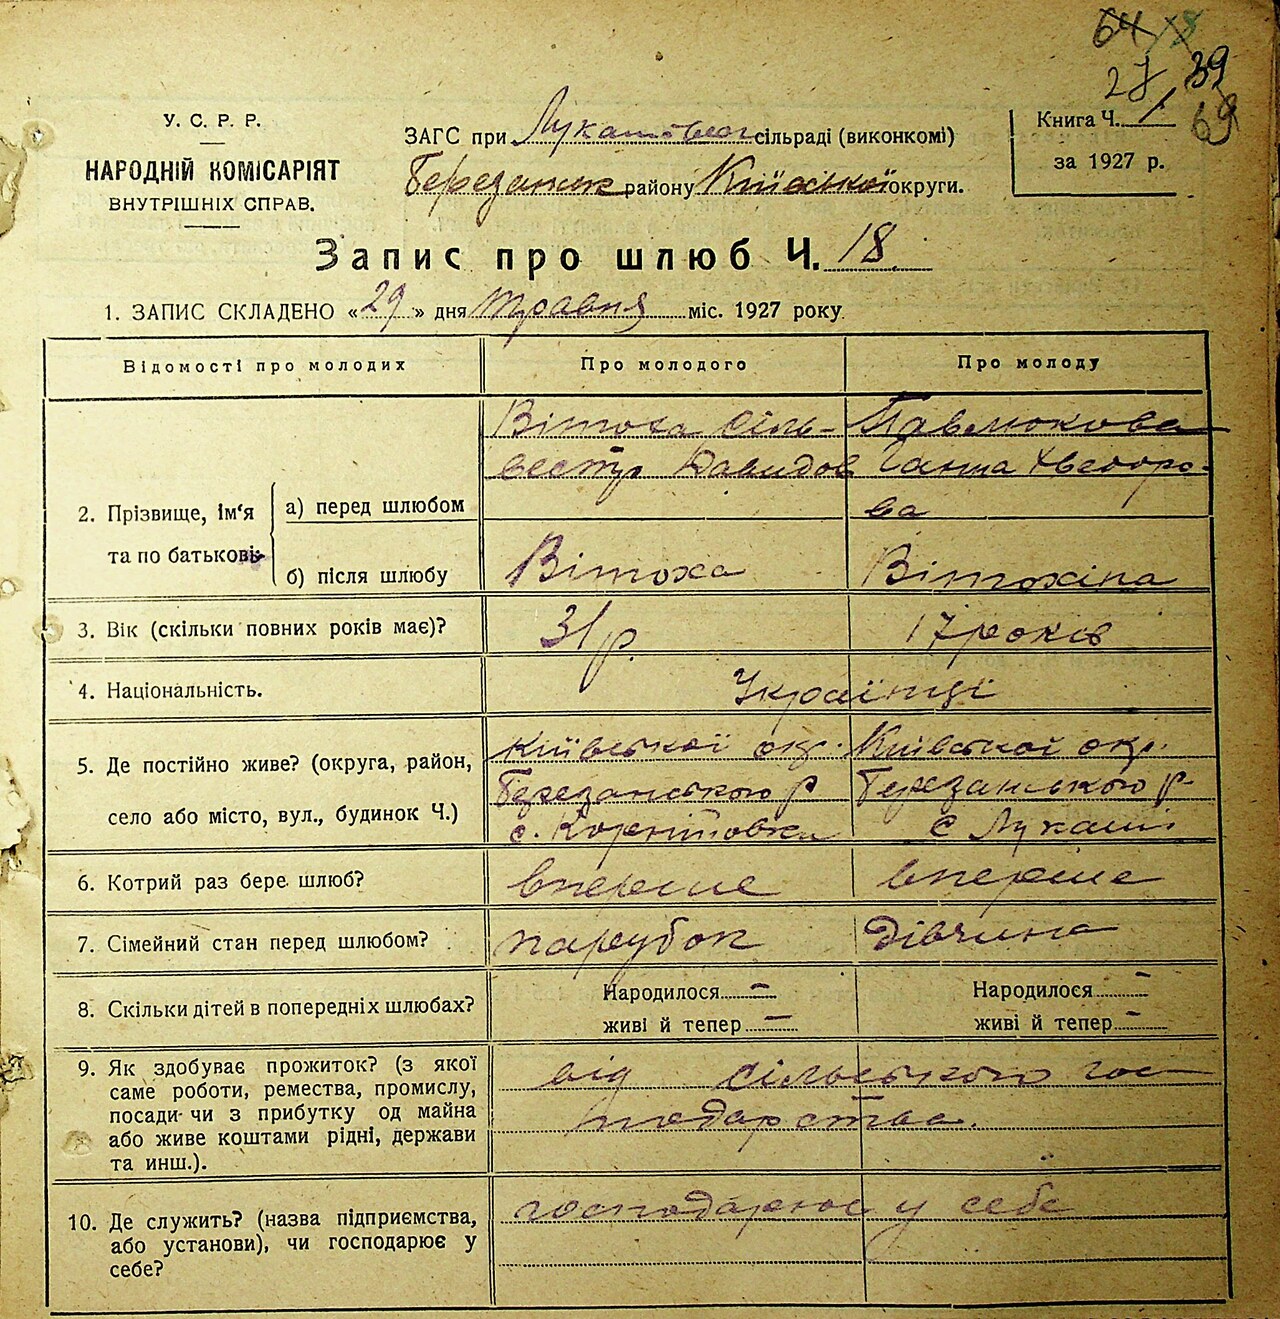 64 18
27 39
69
У. С. Р. Р.
НАРОДНІЙ КОМІСАРІЯТ
ВНУТРІШНІХ СПРАВ.
ЗАГС при сільраді (виконкомі)
Березанськ району Київської округи.
Книга Ч. 1
за 1927 р.
Запис про шлюб Ч. 18
1. ЗАПИС СКЛАДЕНО «29» дня травня міс. 1927 року
Відомості про молодих Про молодого Про молоду
2. Прізвище, ім'я та по батькові
а) перед шлюбом
Вітоха Сіль-
вестр Давидов
Павлюкова
Ганна Хведоро-
ва
б) після шлюбу Вітоха Вітохіна
3. Вік (скільки повних років має)? 31 р. 17 років
4. Національність. Українці
5. Де постійно живе? (округа, район,
село або місто, вул., будинок Ч.)
Київської окр.
Березанського р
с.
Київської окр.
Березанського р-
с Лукаші
6. Котрий раз бере шлюб? вперше вперше
7. Сімейний стан перед шлюбом? парубок дівчина
8. Скільки дітей в попередніх шлюбах?
Народилося —
живі й тепер —
Народилося —
живі й тепер —
9. Як здобуває прожиток? (з якої
саме роботи, ремества, промислу,
посади чи з прибутку од майна
або живе коштами рідні, держави
та инш.).
від сільського гос-
подарства.
10. Де служить? (назва підприємства,
або установи), чи господарює у
себе?
господарює у себе